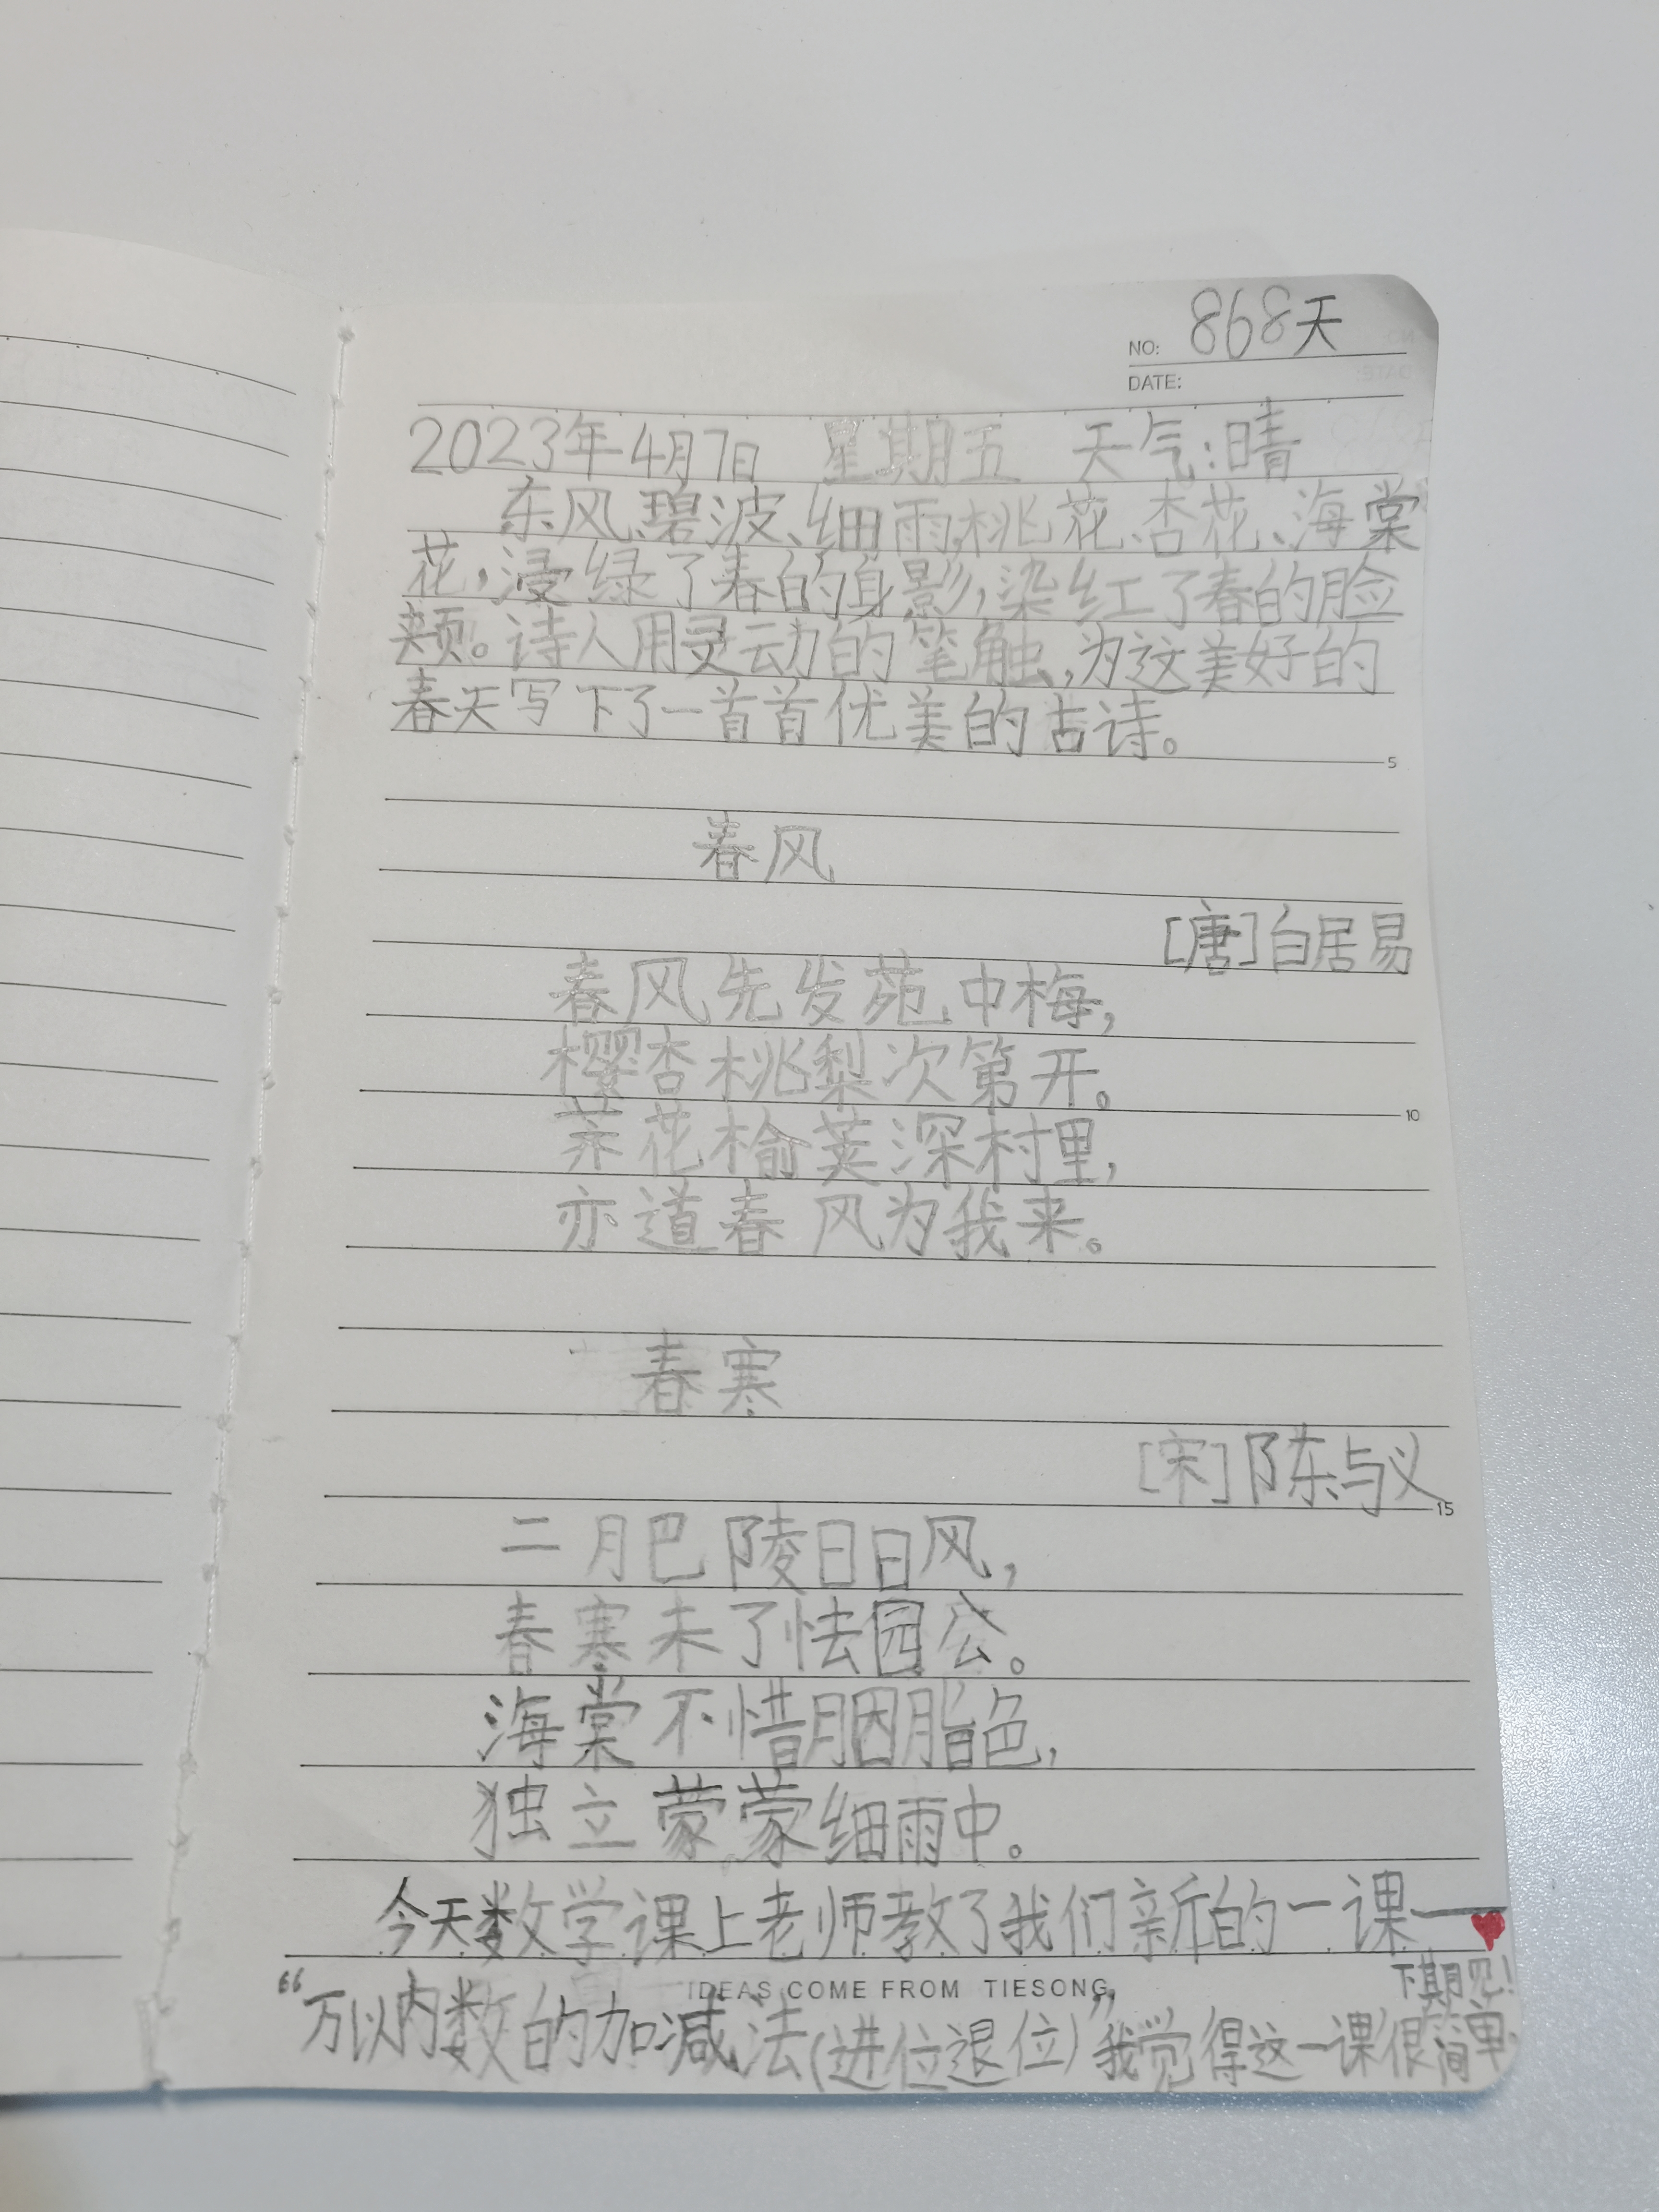 NO: 868天
DATE:
2023年4月7日 星期五 天气:晴
东风、碧波、细雨、桃花、杏花、海棠
花,浸绿了春的身影,染红了春的脸
颊。诗人用灵动的笔触,为这美好的
春天写下了一首首优美的古诗。
5
春风
[唐]白居易
春风先发苑中梅,
樱杏桃梨次第开。
10
荠花榆荚深村里,
亦道春风为我来。
春寒
[宋]陈与义
15
二月巴陵日日风,
春寒未了怯园公。
海棠不惜胭脂色,
独立蒙蒙细雨中。
今天数学课上老师教了我们新的一课——
IDEAS COME FROM TIESONG
下期见!
“万以内数的加减法(进位退位)”,我觉得这一课很简单.